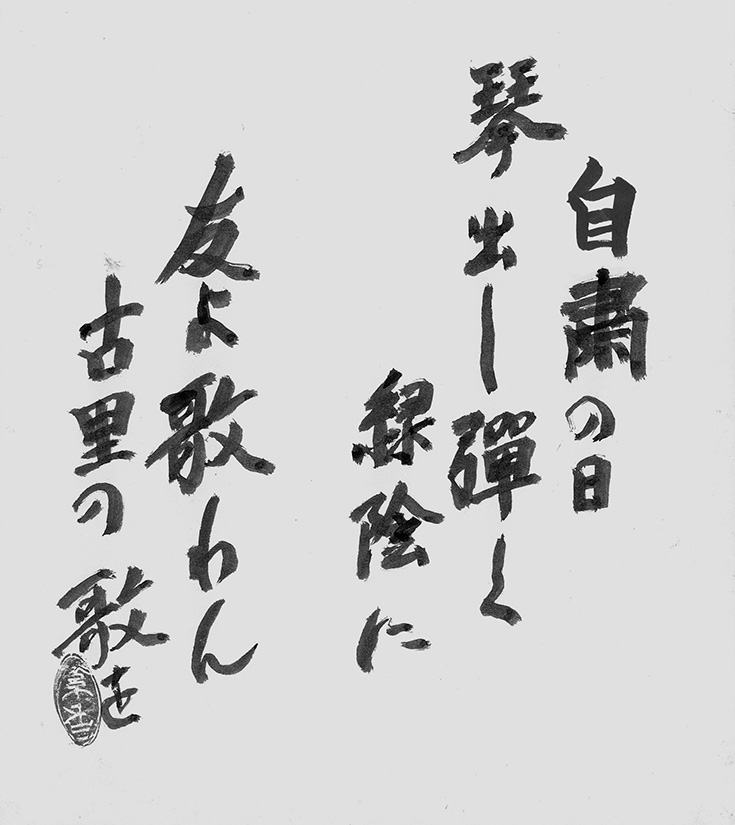 自粛の日
琴出し彈く
緑陰に
友よ歌わん
古里の歌を